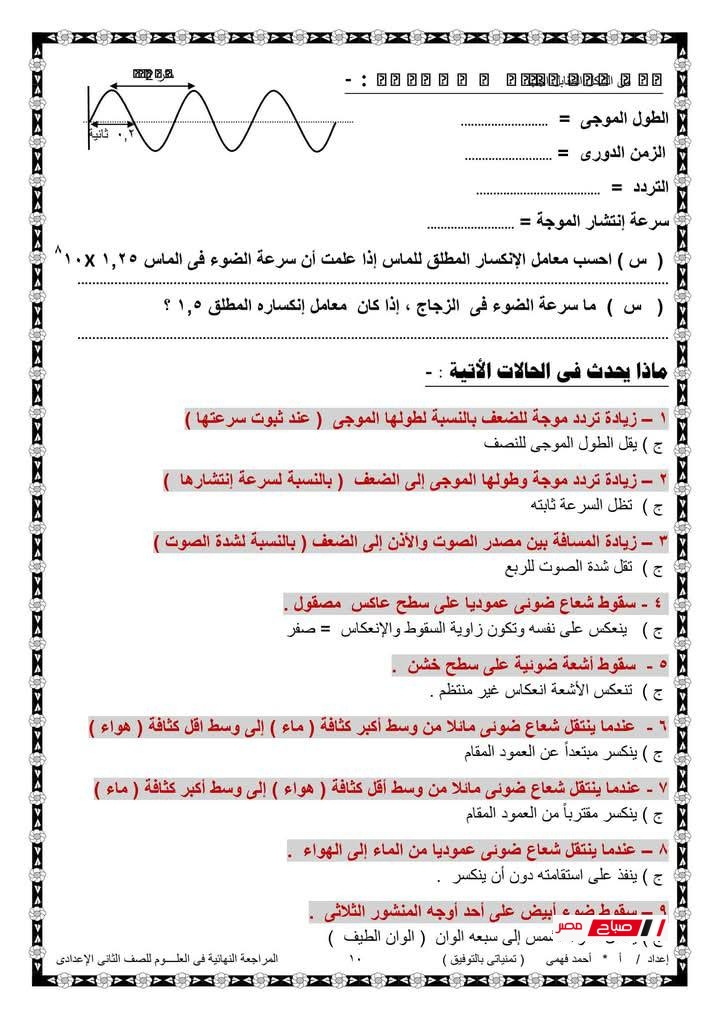 الطول الموجى = ..........................
الزمن الدورى = ..........................
التردد = .....................................
سرعة إنتشار الموجة = ..........................
٠,٢ ثانية
( س ) احسب معامل الإنكسار المطلق للماس إذا علمت أن سرعة الضوء فى الماس ١,٢٥ x١٠ ٨
( س ) ما سرعة الضوء فى الزجاج ، إذا كان معامل إنكساره المطلق ١,٥ ؟
ماذا يحدث فى الحالات الأتية : -
١ – زيادة تردد موجة للضعف بالنسبة لطولها الموجى ( عند ثبوت سرعتها )
ج ) يقل الطول الموجى للنصف
٢ – زيادة تردد موجة وطولها الموجى إلى الضعف ( بالنسبة لسرعة إنتشارها )
ج ) تظل السرعة ثابته
٣ – زيادة المسافة بين مصدر الصوت والأذن إلى الضعف ( بالنسبة لشدة الصوت )
ج ) تقل شدة الصوت للربع
٤ - سقوط شعاع ضوئى عموديا على سطح عاكس مصقول .
ج ) ينعكس على نفسه وتكون زاوية السقوط والإنعكاس = صفر
٥ - سقوط أشعة ضوئية على سطح خشن .
ج ) تنعكس الأشعة انعكاس غير منتظم .
٦ - عندما ينتقل شعاع ضوئى مائلا من وسط أكبر كثافة ( ماء ) إلى وسط اقل كثافة ( هواء )
ج ) ينكسر مبتعداً عن العمود المقام
٧ - عندما ينتقل شعاع ضوئى مائلا من وسط أقل كثافة ( هواء ) إلى وسط أكبر كثافة ( ماء )
ج ) ينكسر مقترباً من العمود المقام
٨ – عندما ينتقل شعاع ضوئى عموديا من الماء إلى الهواء .
ج ) ينفذ على استقامته دون أن ينكسر .
٩ – سقوط ضوء أبيض على أحد أوجه المنشور الثلاثى .
إلى سبعه الوان ( الوان الطيف )
صباح مصر
إعداد / أ * أحمد فهمى ( تمنياتى بالتوفيق ) ١٠ المراجعة النهائية فى العلـــوم للصف الثانى الإعدادى